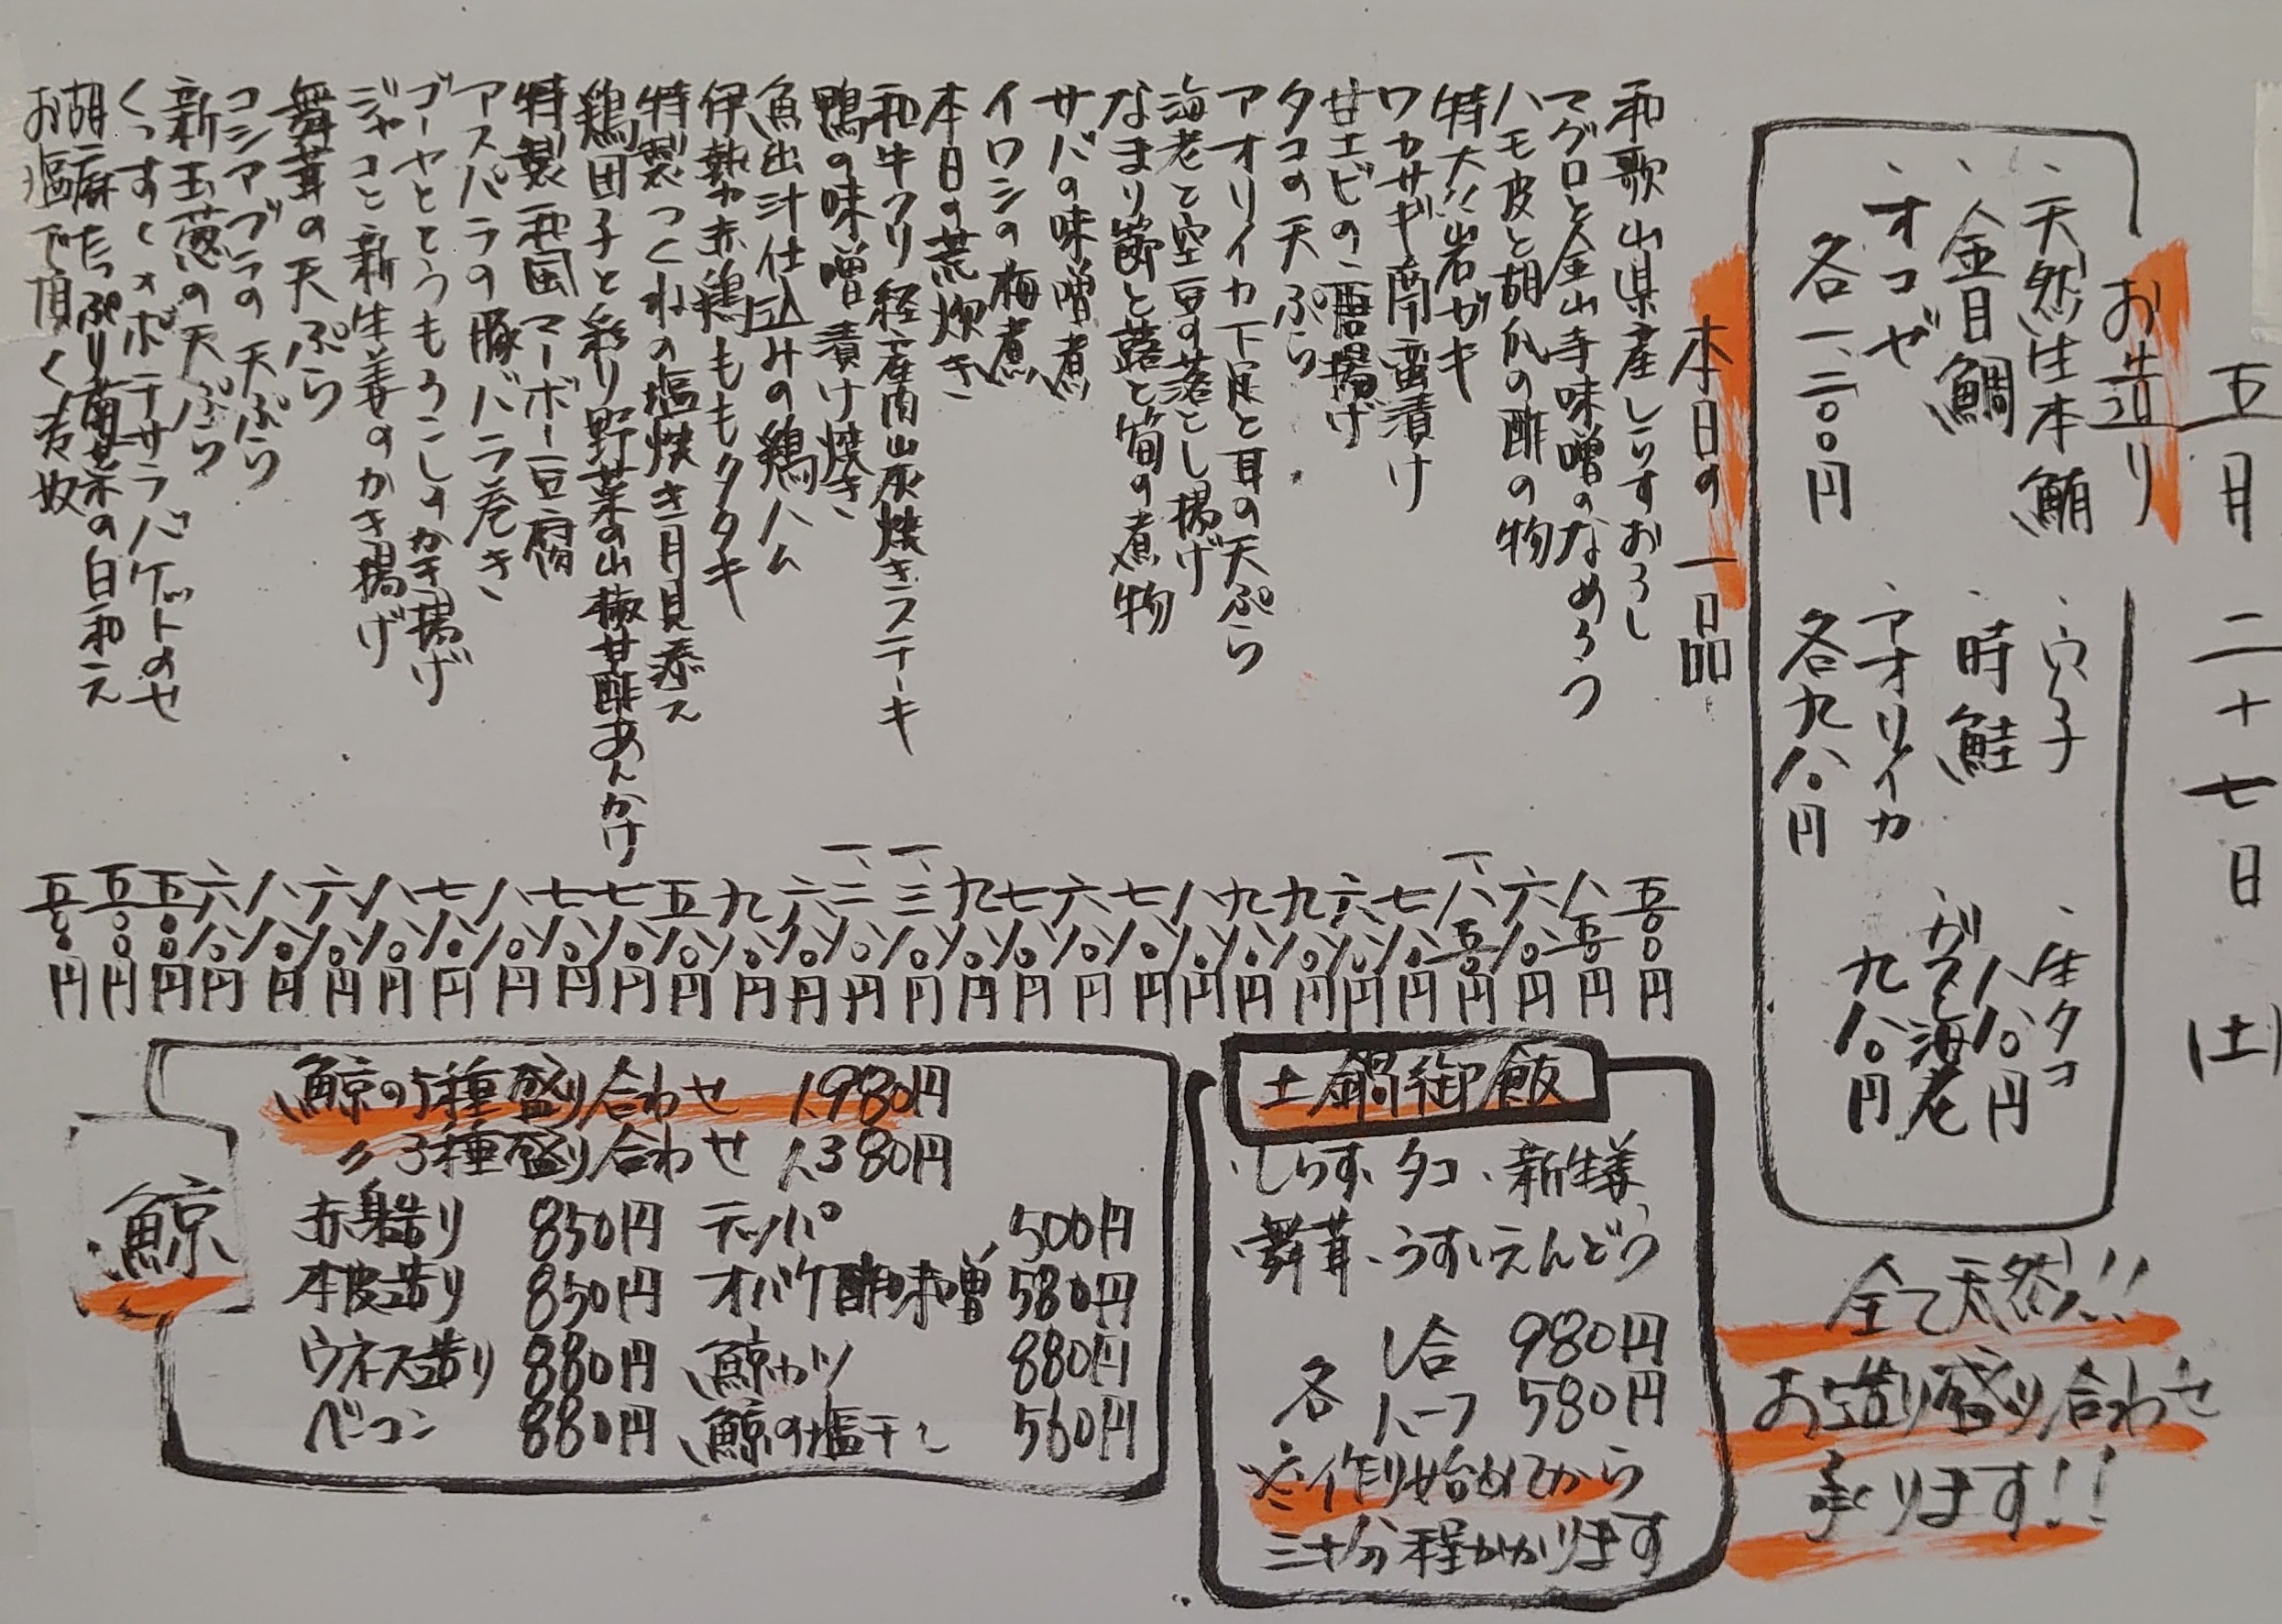 五月二十七日(土)
お造り
・天然生本鮪
・金目鯛
・オコゼ
各一、二〇〇円
・穴子
・時鮭
・アオリイカ
各九八〇円
・生タコ
八八〇円
・がすえ海老
九八〇円
全て天然!!
お造り盛り合わせ
承ります!!
本日の一品
和歌山県産しらすおろし 五〇〇円
マグロと金山寺味噌のなめろう 八五〇円
ハモ皮と胡瓜の酢の物 六八〇円
特大!!岩ガキ 一、八五〇円
ワカサギ南蛮漬け 七八〇円
甘エビの唐揚げ 六八〇円
タコの天ぷら 九八〇円
アオリイカ下足と耳の天ぷら 九八〇円
海老と空豆の落とし揚げ 八八〇円
なまり節と蕗と筍の煮物 七八〇円
サバの味噌煮 六八〇円
イワシの梅煮 七八〇円
本日の荒炊き 九八〇円
和牛ウリ経産肉炭焼きステーキ 一、三八〇円
鴨の味噌漬け焼き 一、二八〇円
魚出汁仕込みの鶏ハム 六八〇円
伊勢赤鶏ももタタキ 九八〇円
特製つくねの塩焼き月見添え 五八〇円
鶏団子と彩り野菜の山椒甘酢あんかけ 七八〇円
特製和風マーボー豆腐 七八〇円
アスパラの豚バラ巻き 八八〇円
ゴーヤととうもろこしのかき揚げ 七八〇円
ジャコと新生姜のかき揚げ 八八〇円
舞茸の天ぷら 六八〇円
コシアブラの天ぷら 八八〇円
新玉葱の天ぷら 六八〇円
ポテサラバケットのせ 五〇〇円
胡麻たっぷり菊菜の白和え 五〇〇円
お塩で頂く寄せ奴 五〇〇円
土鍋御飯
・しらす・タコ・新生姜
・舞茸・うすいえんどう
各 1合 980円
ハーフ 580円
※作り始めてから
三十分程かかります
鯨
鯨の5種盛り合わせ 1,980円
〃3種盛り合わせ 1,380円
赤身造り 850円 テッパ 500円
本皮造り 850円 オバケ酢味噌 580円
ウネス造り 880円 鯨カツ 880円
ベーコン 880円 鯨の塩干し 560円